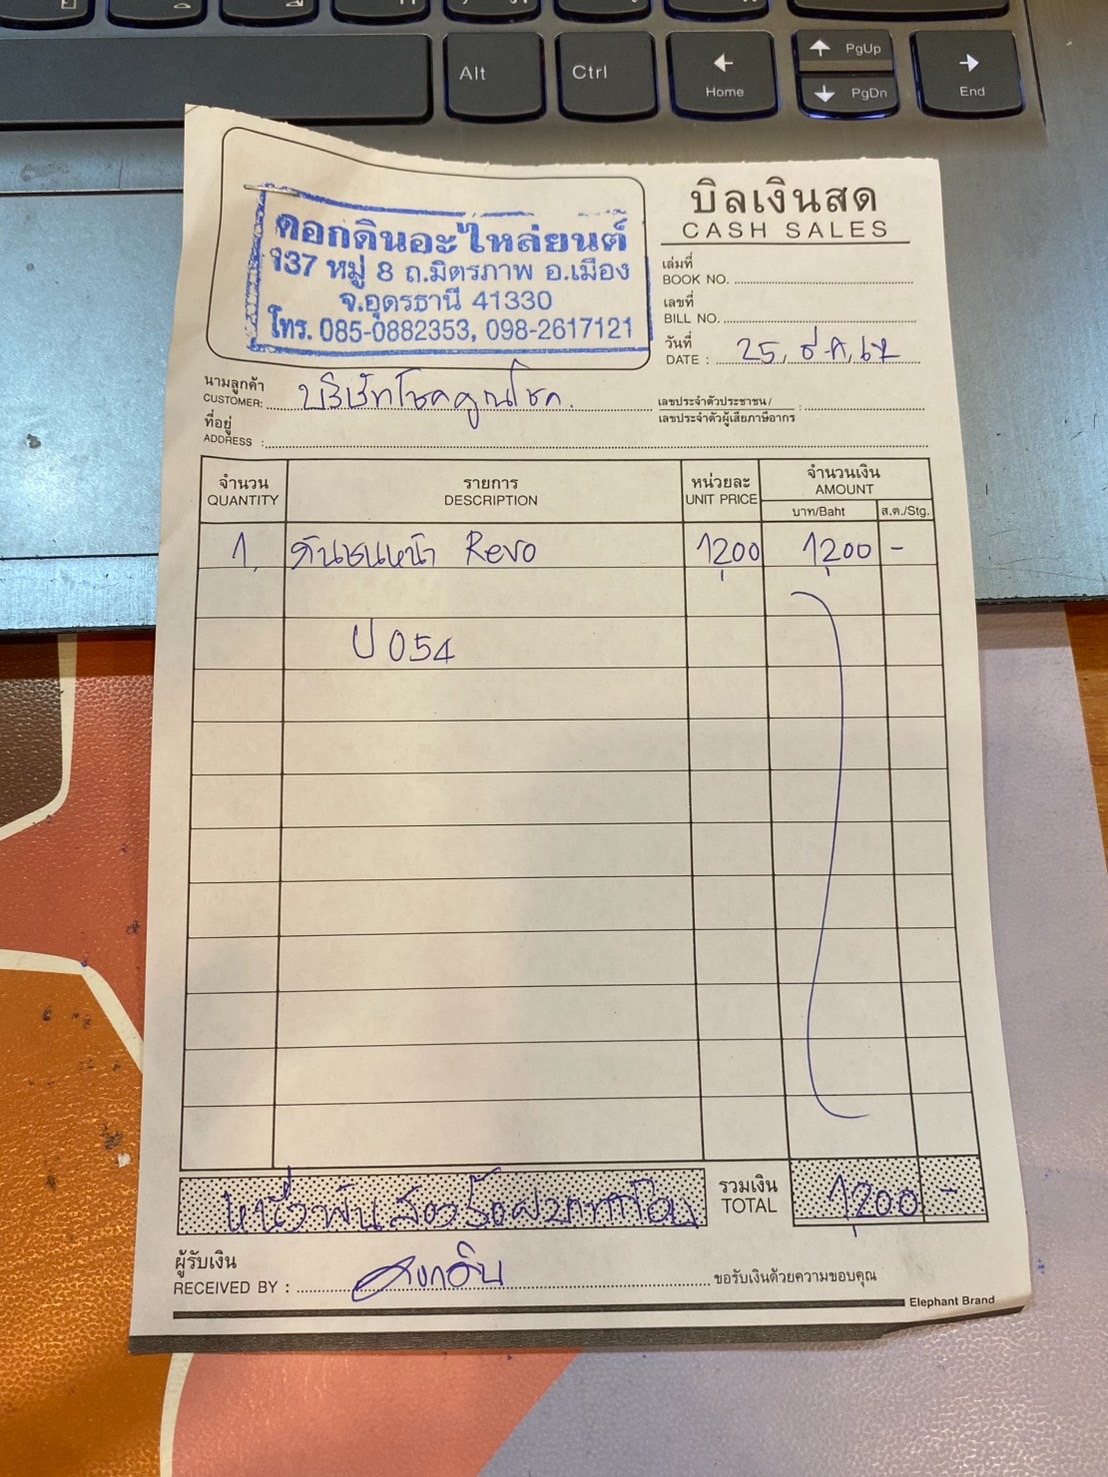 Alt
Ctrl
Home
PgUp
PgDn
End
ดอกดินอะไหล่ยนต์
137 หมู่ 8 ถ.มิตรภาพ อ.เมือง
จ.อุดรธานี 41330
โทร. 085-0882353, 098-2617121
บิลเงินสด
CASH SALES
เล่มที่
BOOK NO.
เลขที่
BILL NO.
วันที่
DATE : 25, ธ.ค, 67
นามลูกค้า
CUSTOMER: บริษัทโชคคูณโชค.
เลขประจำตัวประชาชน /
เลขประจำตัวผู้เสียภาษีอากร :
ที่อยู่
ADDRESS :
จำนวน รายการ หน่วยละ จำนวนเงิน
QUANTITY DESCRIPTION UNIT PRICE AMOUNT
บาท/Baht ส.ต./Stg.
1, กันชนหน้า Revo 1,200 1,200 -
ป 054
หนึ่งพันสองร้อยบาทถ้วน รวมเงิน
TOTAL 1,200 -
ผู้รับเงิน
RECEIVED BY : ดอกดิน ขอรับเงินด้วยความขอบคุณ
Elephant Brand